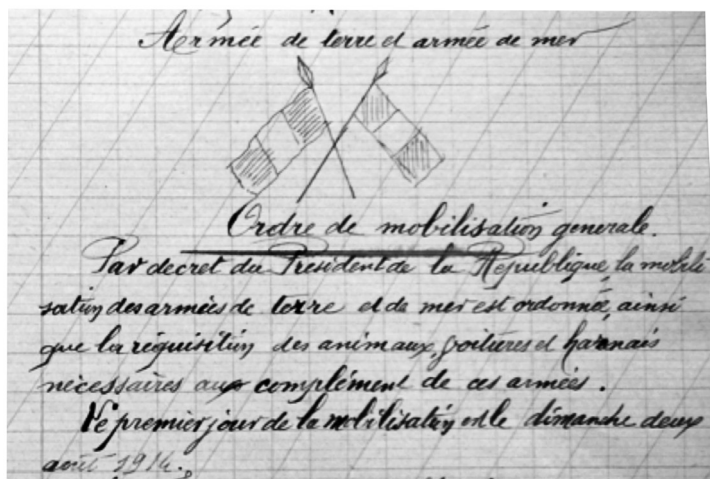 Armée de terre et armée de mer
Ordre de mobilisation generale.
Par decret du President de la Republique, la mobili
sation des armées de terre et de mer est ordonnée, ainsi
que la réquisition des animaux, voitures et harnais
nécessaires au complément de ces armées.
Le premier jour de la mobilisation est le dimanche deux
août 1914.